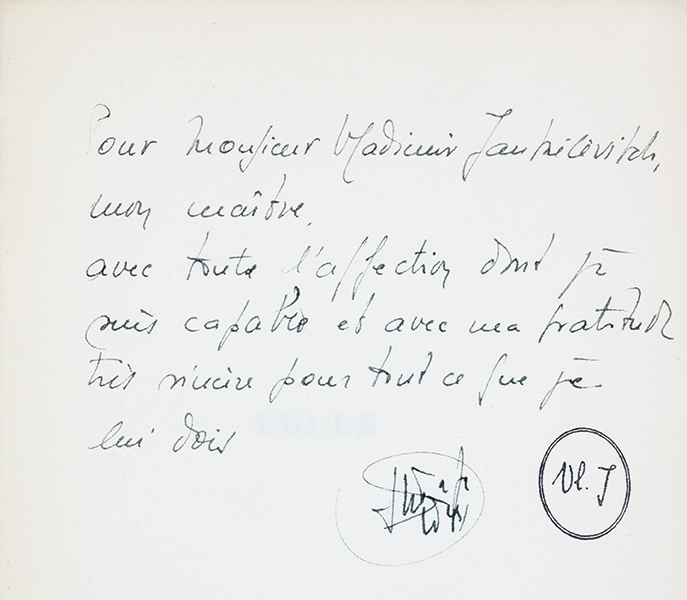 Pour Monsieur Vladimir Jankélévitch,
mon maître,
avec toute l'affection dont je
suis capable et avec ma gratitude
très sincère pour tout ce que je
lui dois
Vl. J